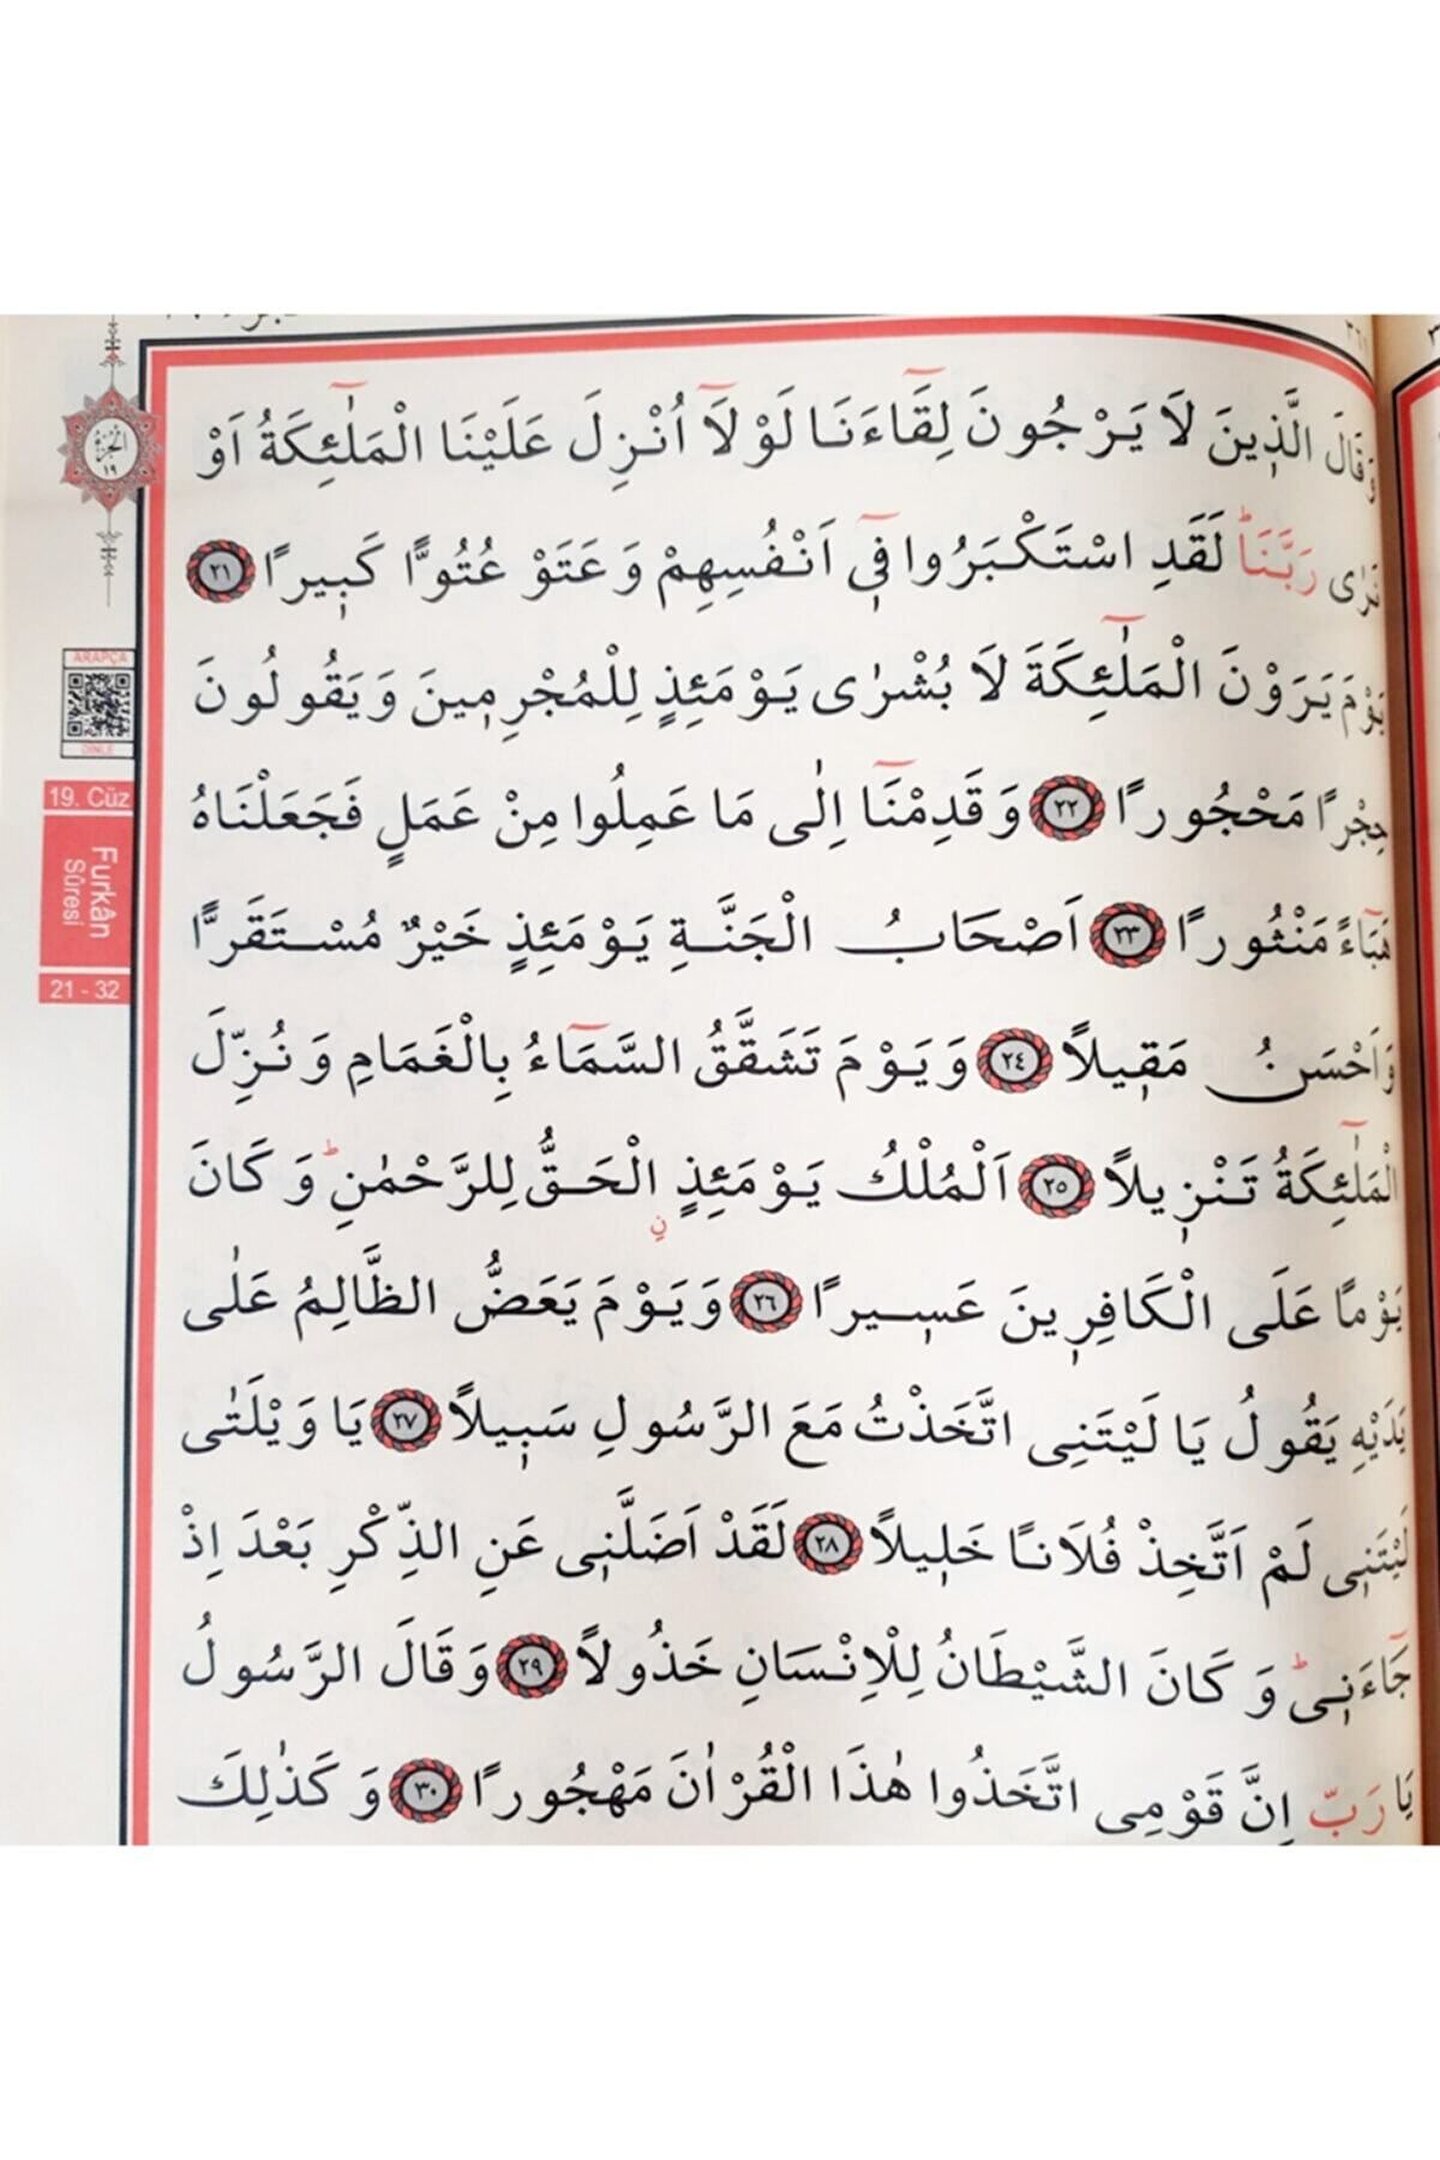 الجزء
١٩
ARAPÇA
DİNLE
19. Cüz
Furkân
Sûresi
21 - 32
وَقَالَ الَّذ۪ينَ لَا يَرْجُونَ لِقَٓاءَنَا لَوْلَٓا اُنْزِلَ عَلَيْنَا الْمَلٰٓئِكَةُ اَوْ
نَرٰى رَبَّنَاۜ لَقَدِ اسْتَكْبَرُوا ف۪ٓي اَنْفُسِهِمْ وَعَتَوْ عُتُوًّا كَب۪يرًا ﴿٢١﴾
يَوْمَ يَرَوْنَ الْمَلٰٓئِكَةَ لَا بُشْرٰى يَوْمَئِذٍ لِلْمُجْرِم۪ينَ وَيَقُولُونَ
حِجْرًا مَحْجُورًا ﴿٢٢﴾ وَقَدِمْنَٓا اِلٰى مَا عَمِلُوا مِنْ عَمَلٍ فَجَعَلْنَاهُ
هَبَٓاءً مَنْثُورًا ﴿٢٣﴾ اَصْحَابُ الْجَنَّةِ يَوْمَئِذٍ خَيْرٌ مُسْتَقَرًّا
وَاَحْسَنُ مَق۪يلًا ﴿٢٤﴾ وَيَوْمَ تَشَقَّقُ السَّمَٓاءُ بِالْغَمَامِ وَنُزِّلَ
الْمَلٰٓئِكَةُ تَنْز۪يلًا ﴿٢٥﴾ اَلْمُلْكُ يَوْمَئِذٍ الْحَقُّ لِلرَّحْمٰنِۜ وَكَانَ
يَوْمًا عَلَى الْكَافِر۪ينَ عَس۪يرًا ﴿٢٦﴾ وَيَوْمَ يَعَضُّ الظَّالِمُ عَلٰى
يَدَيْهِ يَقُولُ يَا لَيْتَنِي اتَّخَذْتُ مَعَ الرَّسُولِ سَب۪يلًا ﴿٢٧﴾ يَا وَيْلَتٰى
لَيْتَن۪ي لَمْ اَتَّخِذْ فُلَانًا خَل۪يلًا ﴿٢٨﴾ لَقَدْ اَضَلَّن۪ي عَنِ الذِّكْرِ بَعْدَ اِذْ
جَٓاءَن۪يۜ وَكَانَ الشَّيْطَانُ لِلْاِنْسَانِ خَذُولًا ﴿٢٩﴾ وَقَالَ الرَّسُولُ
يَا رَبِّ اِنَّ قَوْمِي اتَّخَذُوا هٰذَا الْقُرْاٰنَ مَهْجُورًا ﴿٣٠﴾ وَكَذٰلِكَ